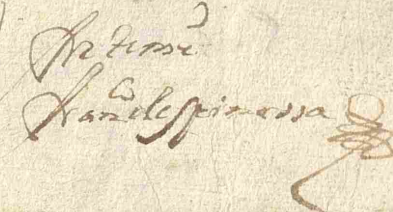 Ante mí
Franco de Espinossa